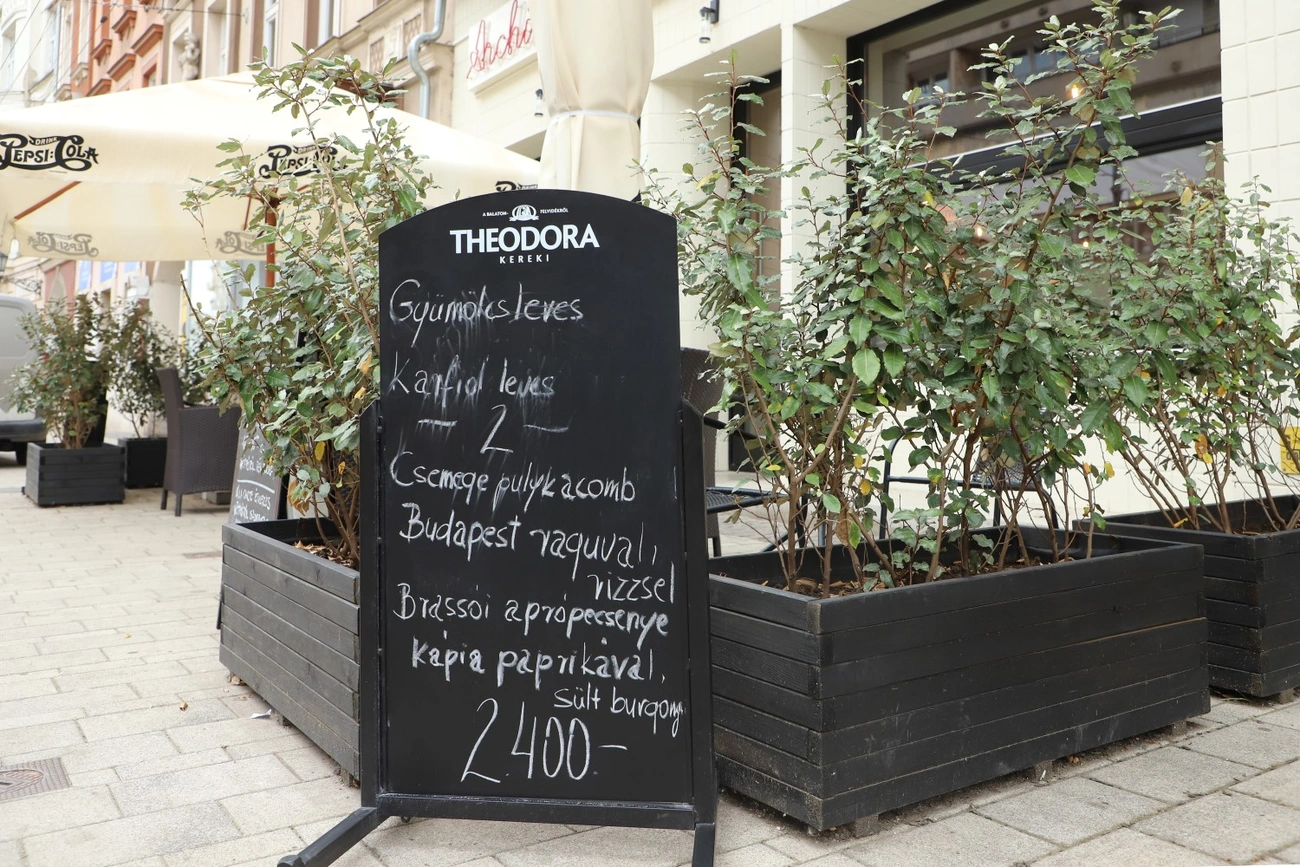 DRINK
PEPSI:COLA
PEPSI:COLA
A BALATON- FELVIDÉKRŐL
THEODORA
KEREKI
Gyümölcsleves
Karfiol leves
— 2 —
Csemege pulykacomb
Budapest raguval,
rizzsel
Brassói aprópecsenye
kápia paprikával,
sült burgony
2.400-